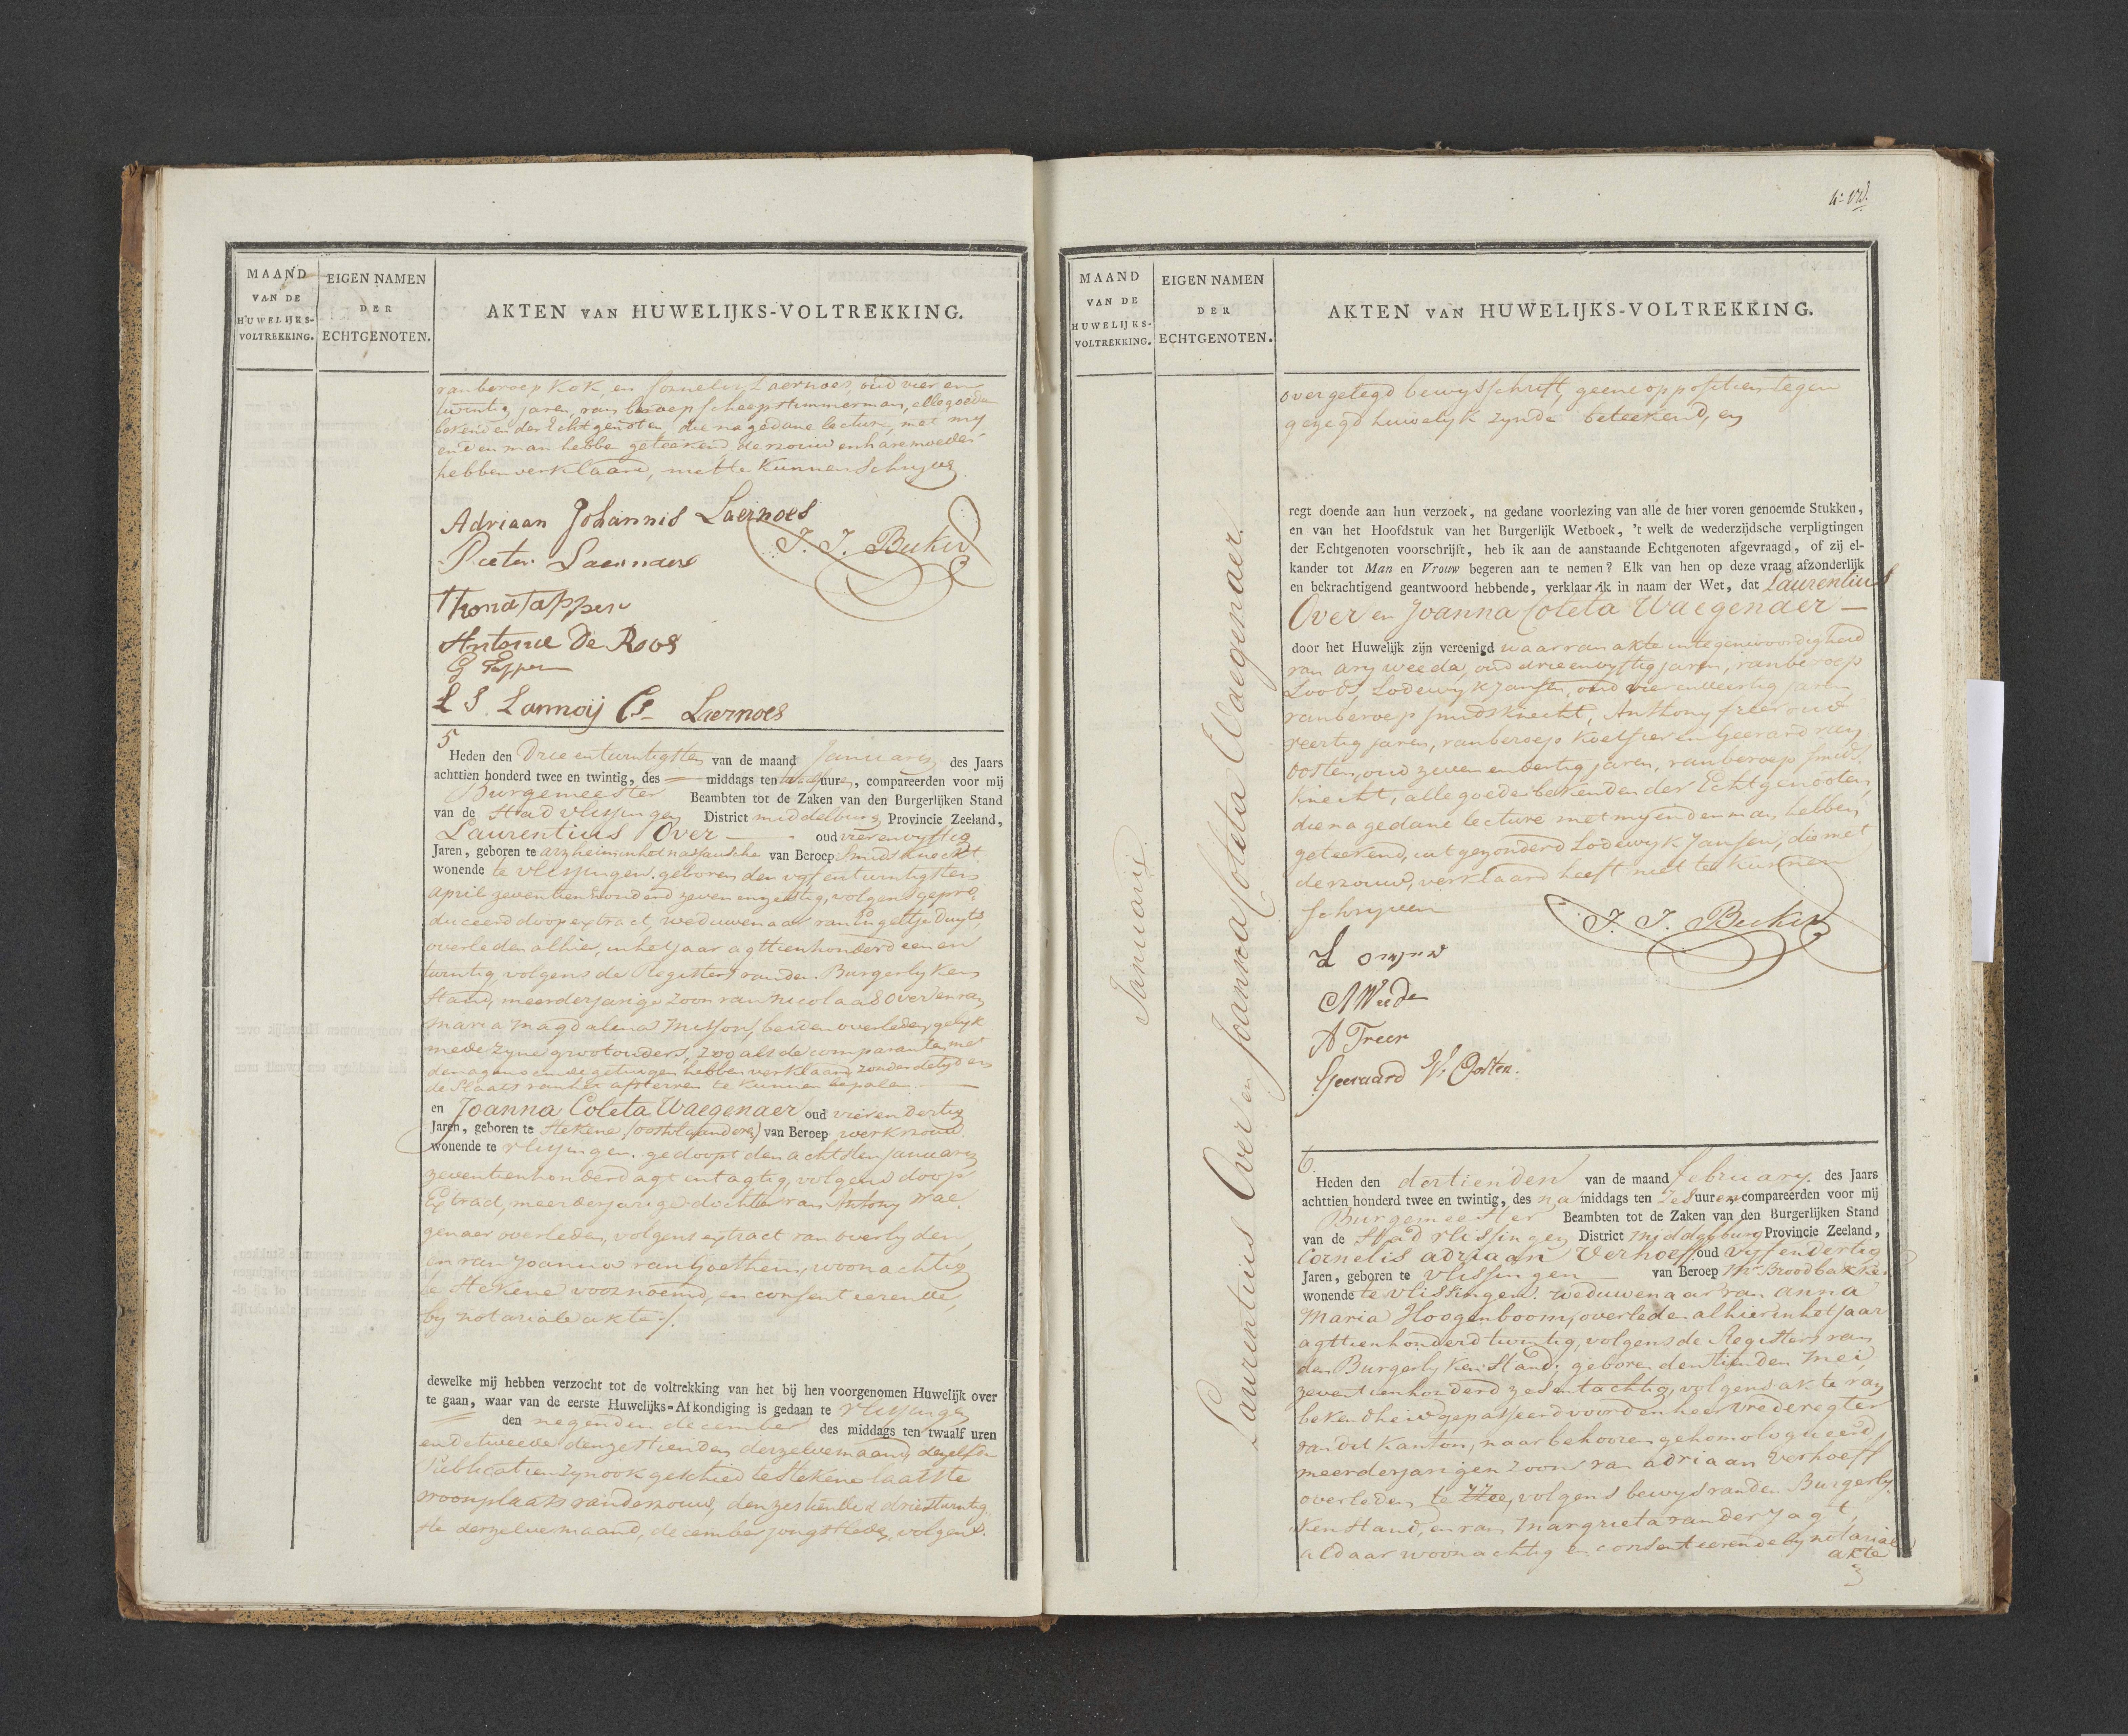 MAAND
VAN DE
HUWELIJKS-
VOLTREKKING.
EIGEN NAMEN
DER
ECHTGENOTEN.
AKTEN VAN HUWELIJKS-VOLTREKKING.
van beroep Kok, en Cornelis Laernoes, oud vier en
twintig jaren, van beroep scheepstimmerman, alle goede
bekenden der Echtgenoten, die na gedane lecture, met my
en den man hebbe geteekend, de vrouw en hare moeder
hebben verklaard, niet te kunnen Schryve
Adriaan Johannis Laernoes
J. J. Becker
Pieter Laernoes
Thona Tappen
Antonie De Roos
G Tappen
L S Lannoij Cs Laernoes
5
Heden den Drie en twintigsten van de maand January des Jaars
achttien honderd twee en twintig, des middags ten twaalf uren, compareerden voor mij
Burgemeester Beambten tot de Zaken van den Burgerlijken Stand
van de Stad Vlissingen District middelburg Provincie Zeeland,
Laurentius Over oud vier en vyftig
Jaren, geboren te arzheim in het nassausche van Beroep Smids Knecht
wonende te vlissingen. geboren den vyf en twintigsten
april zeventien honderd zeven en zestig, volgens gepro-
duceerd doop extract, weduwenaar van Engeltje Duyts,
overleden alhier, in het jaar agttien honderd een en
twintig, volgens de Registers van den Burgerlyken
Stand, meerderjarige Zoon van Nicolaas Over en van
Maria Magdalena Misson, beiden overleden, gelyk
mede zyne grootouders, zoo als de comparanten met
den agens en de getuigen hebben verklaard, zonder de tyd en
de plaats van het afsterven te kunnen bepalen
en Joanna Coleta Waegenaer oud vier en dertig
Jaren, geboren te Stekene (oostvlaanderen) van Beroep werkvrouw
wonende te vlissingen. gedoopt den achtsten January
zeventien honderd agt en tagtig, volgens doop
Extract, meerderjarige dochter van Antony Wae-
genaer overleden, volgens extract van overlyden,
en van Joanna van Goethem, woonachtig
te Stekene voornoemd, en consenteerende,
by notariale akte /.
dewelke mij hebben verzocht tot de voltrekking van het bij hen voorgenomen Huwelijk over
te gaan, waar van de eerste Huwelijks-Afkondiging is gedaan te vlissingen
den negenden december des middags ten twaalf uren
en de tweede den zestienden derzelve maand, dezelfde
Publicatien zyn ook geschied te Stekene laatste
woonplaats van de vrouw, den zestienden drie en twintig-
ste derzelve maand, december jongstleden, volgens
4e Vel.
MAAND
VAN DE
HUWELIJKS-
VOLTREKKING.
EIGEN NAMEN
DER
ECHTGENOTEN.
AKTEN VAN HUWELIJKS-VOLTREKKING.
Januarij.
Laurentius Over en Joanna Coleta Waegenaer.
overgelegd bewysschrift, geene oppositien tegen
gezegd huwelyk zynde beteekend, en
regt doende aan hun verzoek, na gedane voorlezing van alle de hier voren genoemde Stukken,
en van het Hoofdstuk van het Burgerlijk Wetboek, 't welk de wederzijdsche verpligtingen
der Echtgenoten voorschrijft, heb ik aan de aanstaande Echtgenoten afgevraagd, of zij el-
kander tot Man en Vrouw begeren aan te nemen? Elk van hen op deze vraag afzonderlijk
en bekrachtigend geantwoord hebbende, verklaar ik in naam der Wet, dat Laurentius
Over en Joanna Coleta Waegenaer
door het Huwelijk zijn vereenigd waar van akte in tegenwoordigheid
van Ary Weeda, oud drie en vyftig jaren, van beroep
Loots, Lodewyk Jansen, oud vier en veertig jaren,
van beroep smids knecht, Anthony Freer oud
veertig jaren, van beroep Koetsier en Geerard van
Oosten, oud zeven en dertig jaren, van beroep smids
knecht, alle goede bekenden der Echtgenooten,
die na gedane lecture met my en den man hebben
geteekend, uitgezonderd Lodewyk Jansen, die met
de vrouw, verklaard heeft niet te kunnen
schryven
J. J. Becker
A Weeda
A Freer
Geeraard V. Oosten.
6.
Heden den dertienden van de maand february. des Jaars
achttien honderd twee en twintig, des na middags ten Zes uuren compareerden voor mij
Burgemeester Beambten tot de Zaken van den Burgerlijken Stand
van de Stad vlissingen District Middelburg Provincie Zeeland,
Cornelis adriaan Verhoeff oud vyf en dertig
Jaren, geboren te vlissingen van Beroep Mr Broodbakker
wonende te vlissingen. weduwenaar van Anna
Maria Hoogenboom, overleden alhier in het jaar
agttien honderd twintig, volgens de Registers van
den Burgerlyken Stand; geboren den tienden Mei
zeventien honderd zes en tachtig, volgens akte van
bekendheid gepasseerd voor den heer Vrederegter
van dit Kanton, naar behooren gehomologueerd,
meerderjarigen Zoon van adriaan Verhoeff
overleden te Zee, volgens bewys van den Burgerly-
ken Stand, en van Margrieta van der Jagt,
aldaar woonachtig en consenteerende by notariale
akte